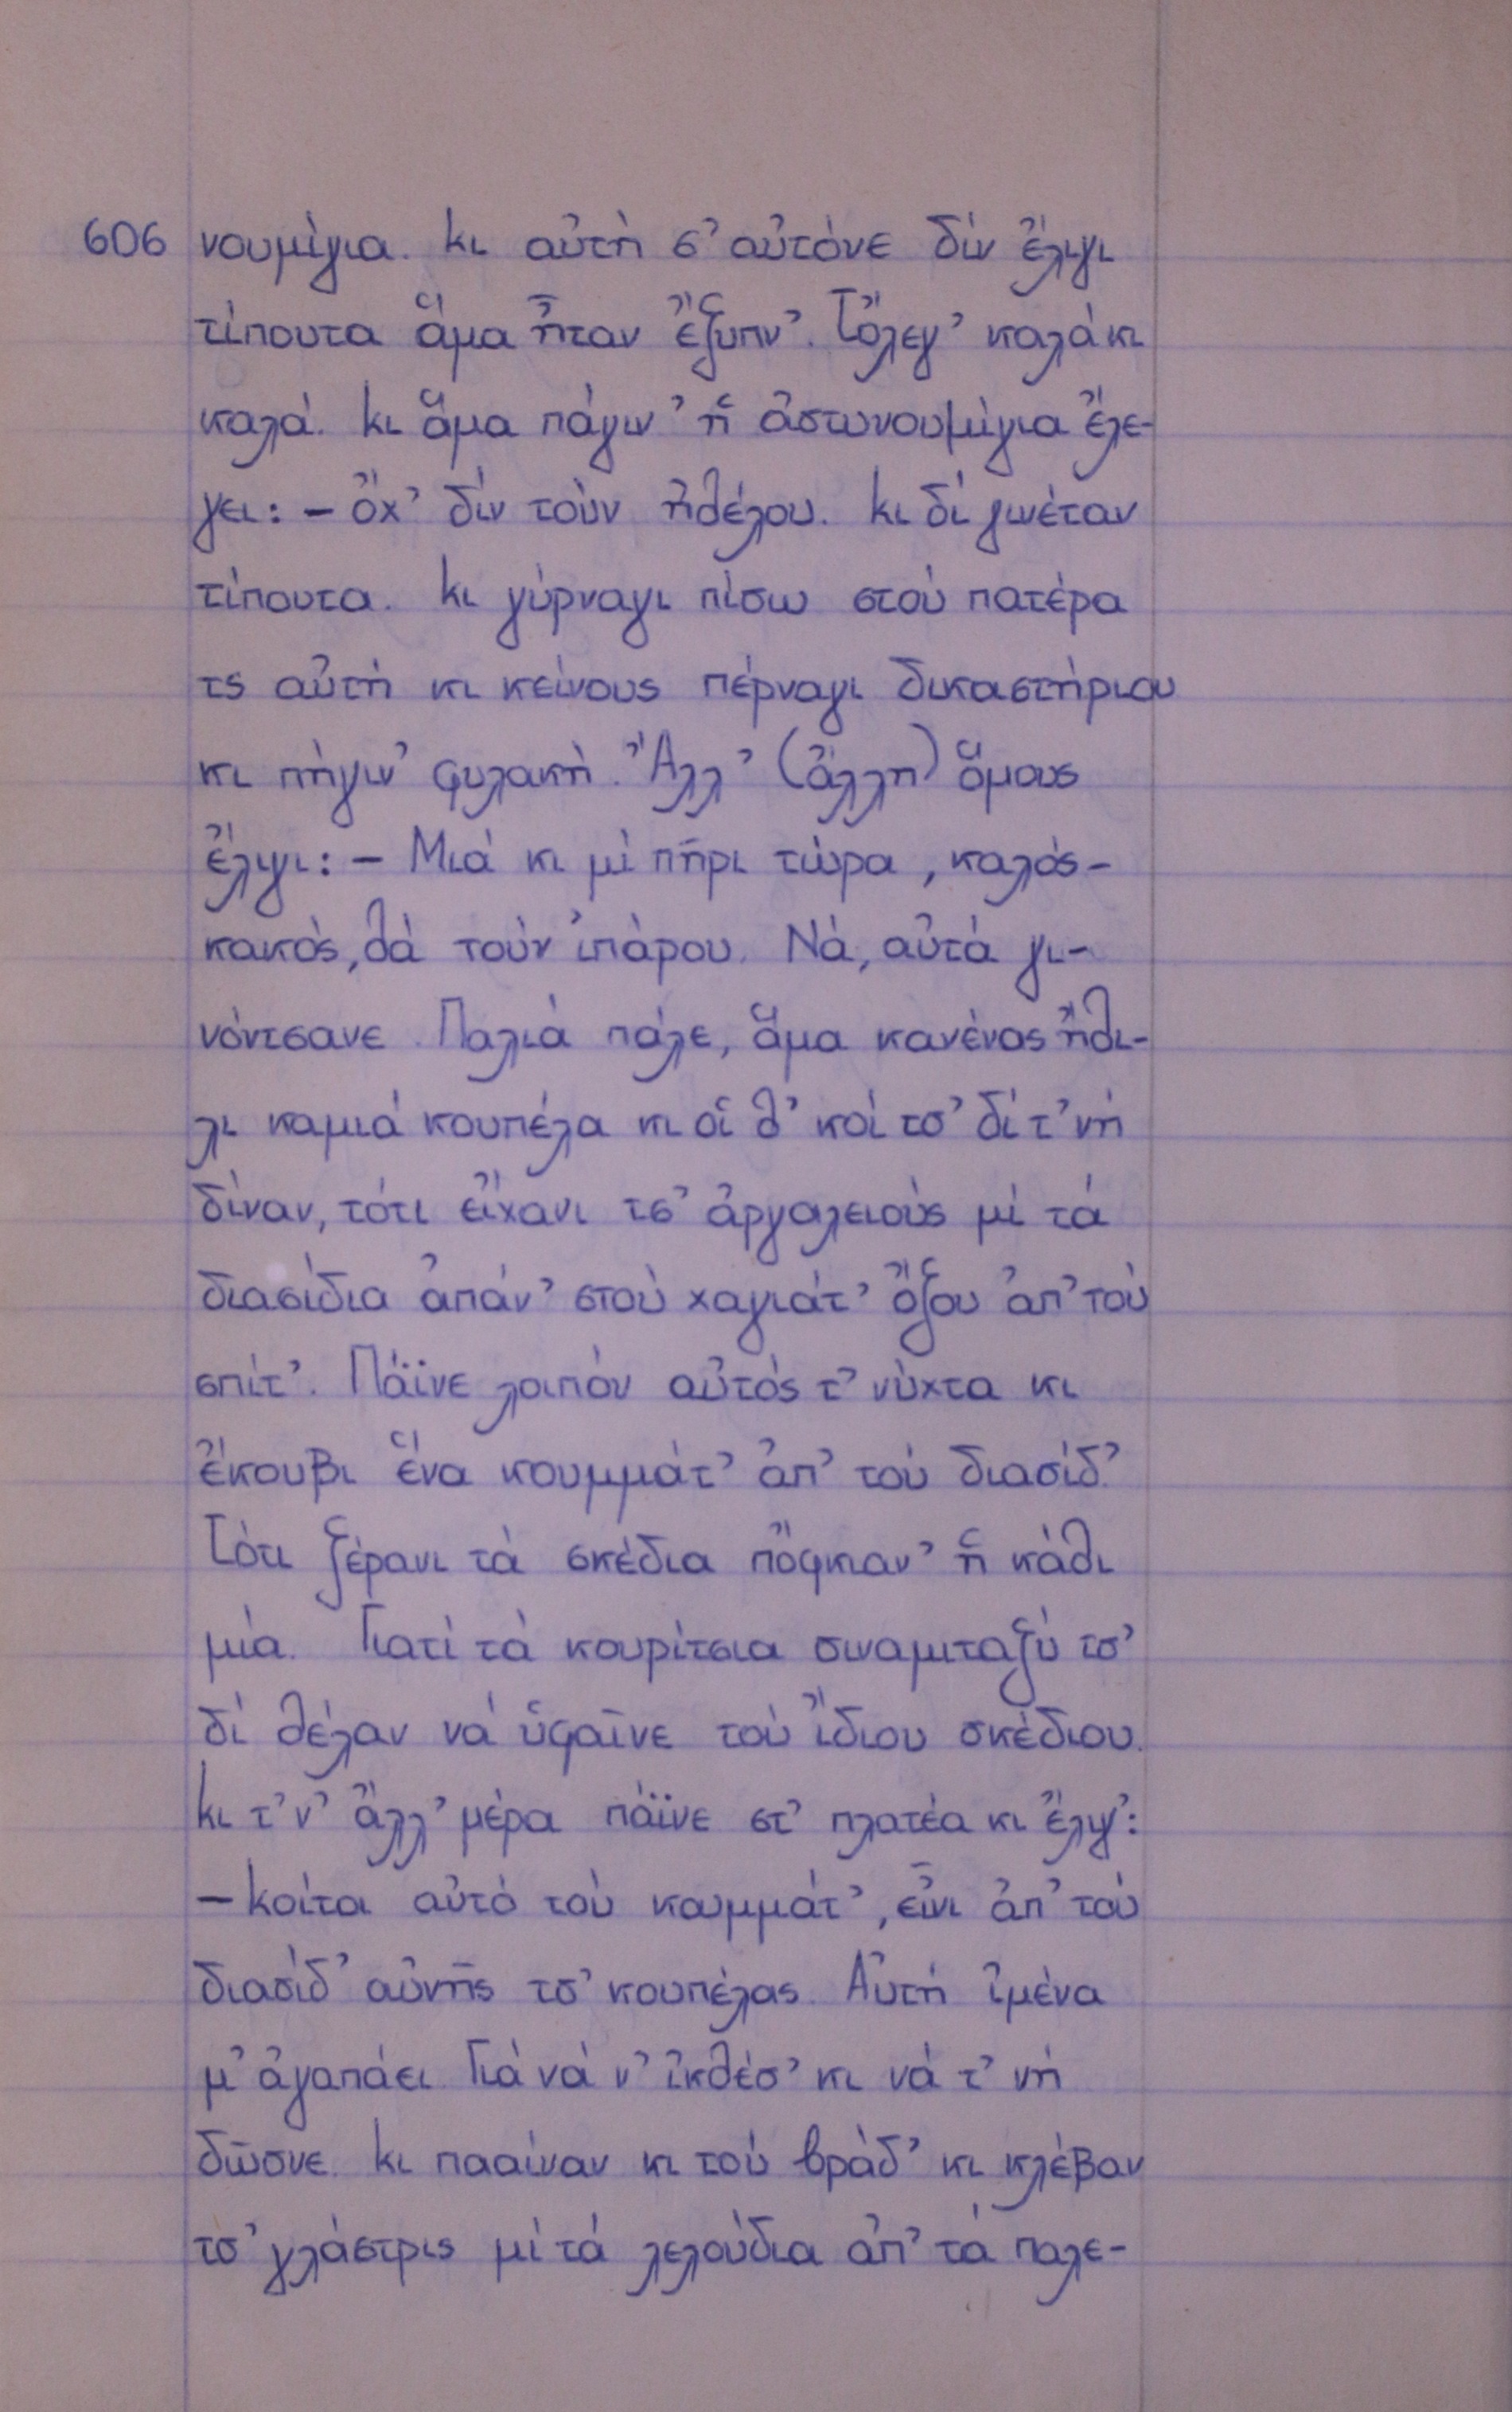 606 νουμίγια. κι αὐτή σ' αὐτόνε δίν ἔλιγι
τίπουτα ἅμα ἦταν ἔξυπν'. Τὄλεγ' καλά κι
καλά. κι ἅμα πάγιν' ἡ ἀστυνουμίγια ἔλε-
γει: - ὄχ' δίν τούν ἠθέλου. κι δί γινέταν
τίπουτα. κι γύρναγι πίσω στού πατέρα
τς αὐτή κι κείνους πέρναγι δικαστήριου
κι πήγιν' φυλακή. Ἄλλ' (ἄλλη) ὅμους
ἔλιγι: - Μιά κι μί πῆρι τώρα, καλός-
κακός, θά τούν ἰπάρου. Νά, αὐτά γι-
νόντσανε. Παλιά πάλε, ἅμα κανένας ἤθι-
λι καμιά κουπέλα κι οἱ δ' κοί τσ' δί τ' νή
δίναν, τότι εἴχανι τσ' ἀργαλειούς μί τά
διασίδια ἀπάν' στού χαγιάτ' ὄξου ἀπ' τού
σπίτ'. Πάϊνε λοιπόν αὐτός τ' νύχτα κι
ἔκουβι ἕνα κουμμάτ' ἀπ' τού διασίδ'.
Τότι ξέρανι τά σκέδια πὄφκιαν' ἡ κάθι
μία. Γιατί τά κουρίτσια σιναμιταξύ τσ'
δί θέλαν νά ὑφαῖνε τού ἴδιου σκέδιου.
κι τ' ν' ἄλλ' μέρα πάϊνε στ' πλατέα κι ἔλιγ':
- κοίτα αὐτό τού κουμμάτ', εἶνι ἀπ' τού
διασίδ' αὐνῆς τσ' κουπέλας. Αὐτή ἰμένα
μ' ἀγαπάει. Γιά νά ν' ἰκθέσ' κι νά τ' νή
δῶσνε. κι πααίναν κι τού βράδ' κι κλέβαν
τσ' γλάστρις μί τά λελούδια ἀπ' τά παλε-